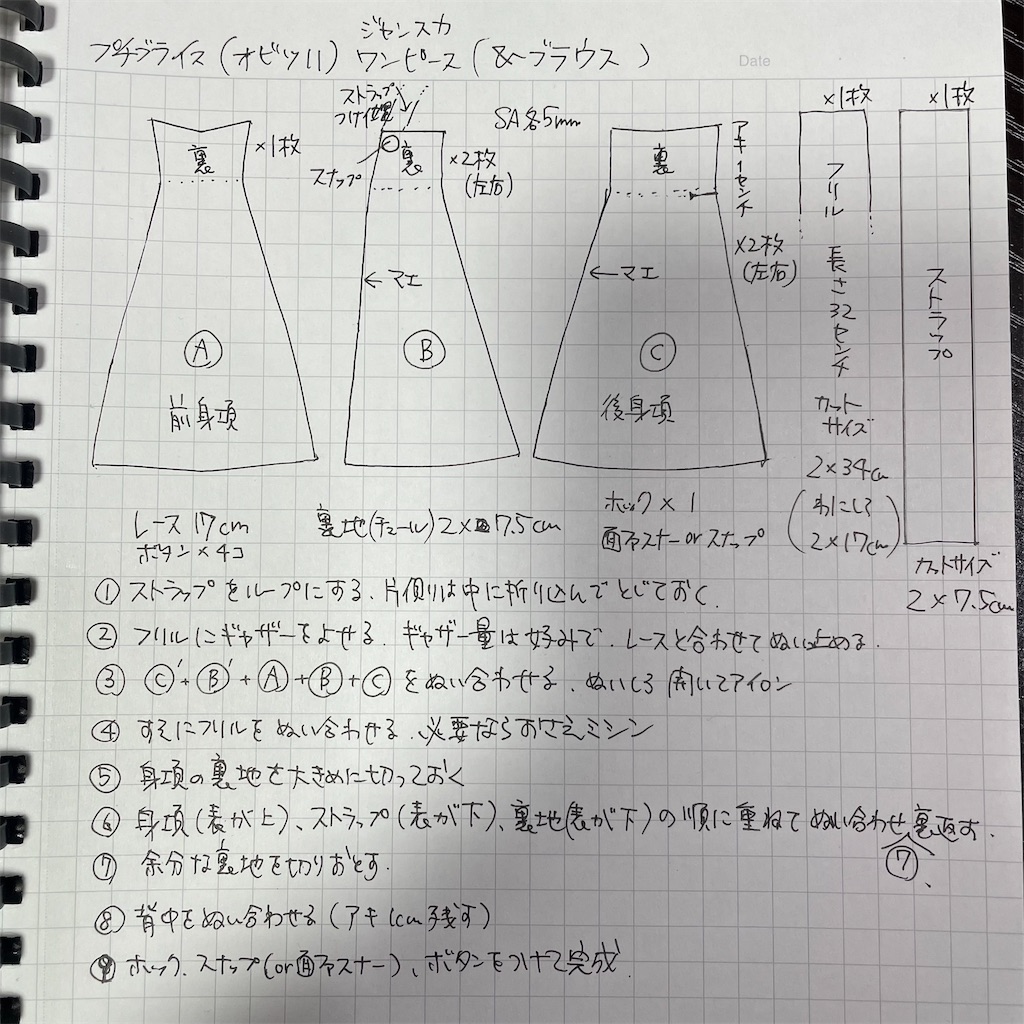 ジャンスカ
プチブライス(オビツ11) ワンピース (&ブラウス )
Date
ストラップ
つけ位置
スナップ
SA各5mm
裏
×1枚
A
前身頃
裏
×2枚
(左右)
←マエ
B
裏
アキ1センチ
×2枚
(左右)
←マエ
C
後身頃
×1枚
フリル
長さ32センチ
カット
サイズ
2×34cm
(わにしろ
2×17cm)
×1枚
ストラップ
カットサイズ
2×7.5cm
レース 17cm
ボタン×4コ
裏地(チュール)2×7.5cm
ホック×1
面ファスナーorスナップ
① ストラップをループにする。片側は中に折り込んでとじておく。
② フリルにギャザーをよせる。ギャザー量は好みで。レースと合わせてぬい止める。
③ C'+B'+A+B+Cをぬい合わせる。ぬいしろ開いてアイロン
④ すそにフリルをぬい合わせる。必要ならおさえミシン
⑤ 身頃の裏地を大きめに切っておく
⑥ 身頃(表が上)、ストラップ(表が下)、裏地(表が下)の順に重ねてぬい合わせ裏返す。
⑦
⑦ 余分な裏地を切りおとす。
⑧ 背中をぬい合わせる(アキ1cm残す)
⑨ ホック、スナップ(or面ファスナー)、ボタンをつけて完成。